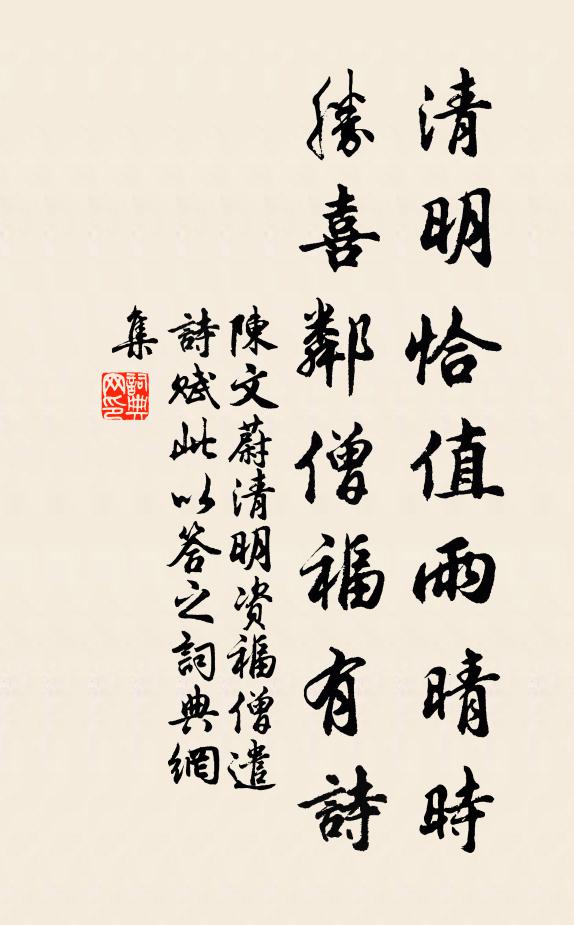 清明恰值雨晴時
勝喜鄰僧福有詩
陳文蔚清明資福僧遣
詩賦此以答之詞典網
集
詞典
网印